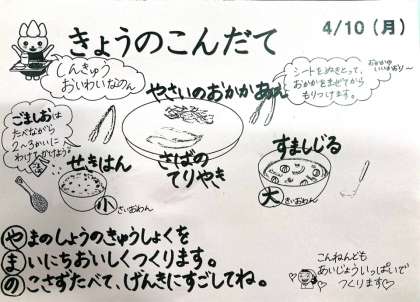 きょうのこんだて
4/10（月）
しんきゅう
おいわいなのん
シートをぬきとって、
おかかをまぜてから
もりつけます。
やさいのおかかあえ
ごましおは
たべながら
2〜3かいに
わけてかけよう!
せきはん
小
さばの
てりやき
すましじる
大
やまのしょうのきゅうしょくを
まいにちおいしくつくります。
のこさずたべて、げんきにすごしてね。
こんねんども
あいじょういっぱいで
つくります♡